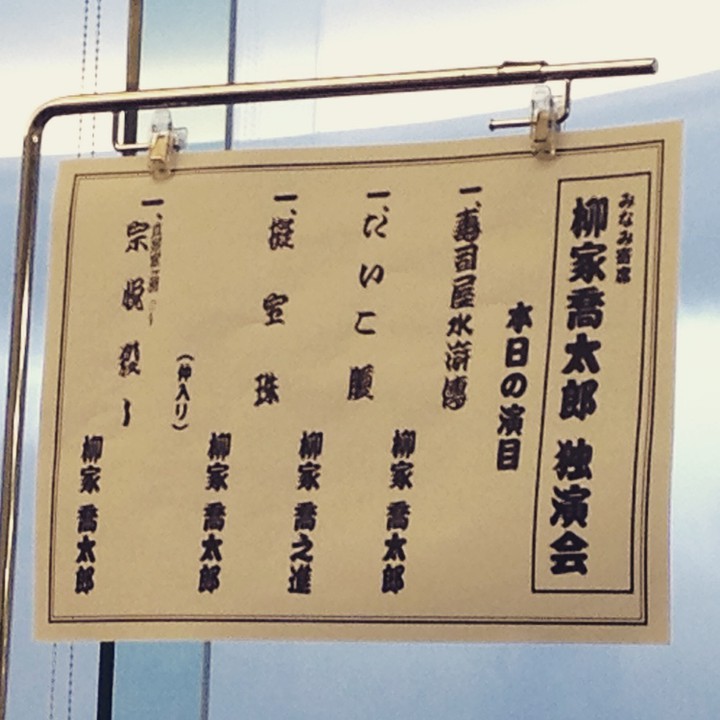 みなみ寄席
柳家喬太郎 独演会
本日の演目
一、寿司屋水滸傳
柳家 喬太郎
一、たいこ腹
柳家 喬之進
一、擬宝珠
柳家 喬太郎
（仲入り）
一、
宗悦殺し
柳家 喬太郎